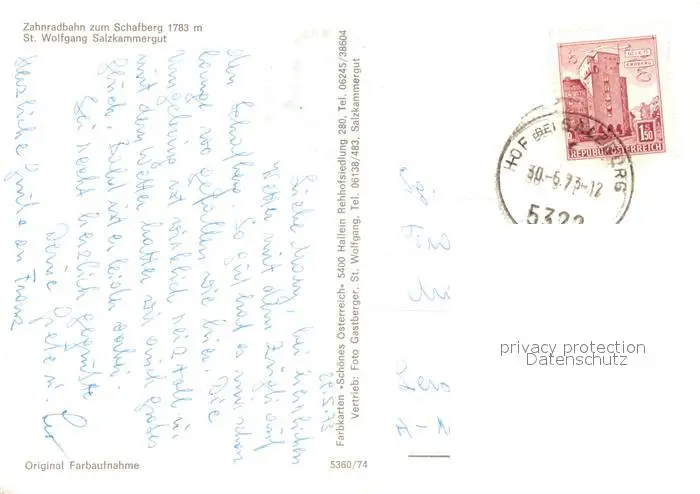 Zahnradbahn zum Schafberg 1783 m
St. Wolfgang Salzkammergut
28.6.73
Liebe
bei herrlichem
Wetter mit dem Zügli auf
den Schafberg. So gut hat es mir schon
lange nie gefallen wie hier. Die
Umgebung ist wirklich reizvoll u.
mit dem Wetter hatten wir auch großes
Glück. Bald ist es leider vorbei.
Sei recht herzlich gegrüßt
Deine
Herzliche Grüße an Franz
Original Farbaufnahme
5360/74
Farbkarten »Schönes Österreich« 5400 Hallein Rehhofsiedlung 280, Tel. 06245/38604
Vertrieb: Foto Gastberger, St. Wolfgang, Tel. 06138/483, Salzkammergut
1 S 50
REPUBLIK ÖSTERREICH
HOF BEI SALZBURG
30.-6.73-12
5322
privacy protection
Datenschutz